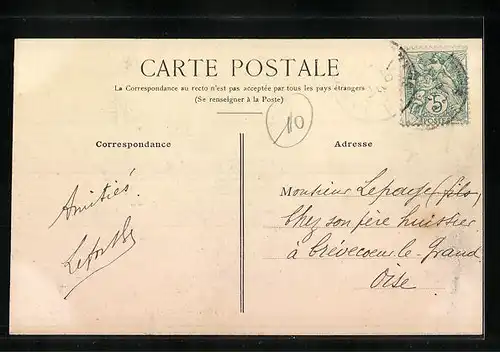 CARTE POSTALE
La Correspondance au recto n'est pas acceptée par tous les pays étrangers
(Se renseigner à la Poste)
10
Correspondance
Adresse
Amitiés.
Monsieur Lepage (fils)
chez son père huissier
à Crèvecoeur-le-Grand
Oise
5c
POSTES